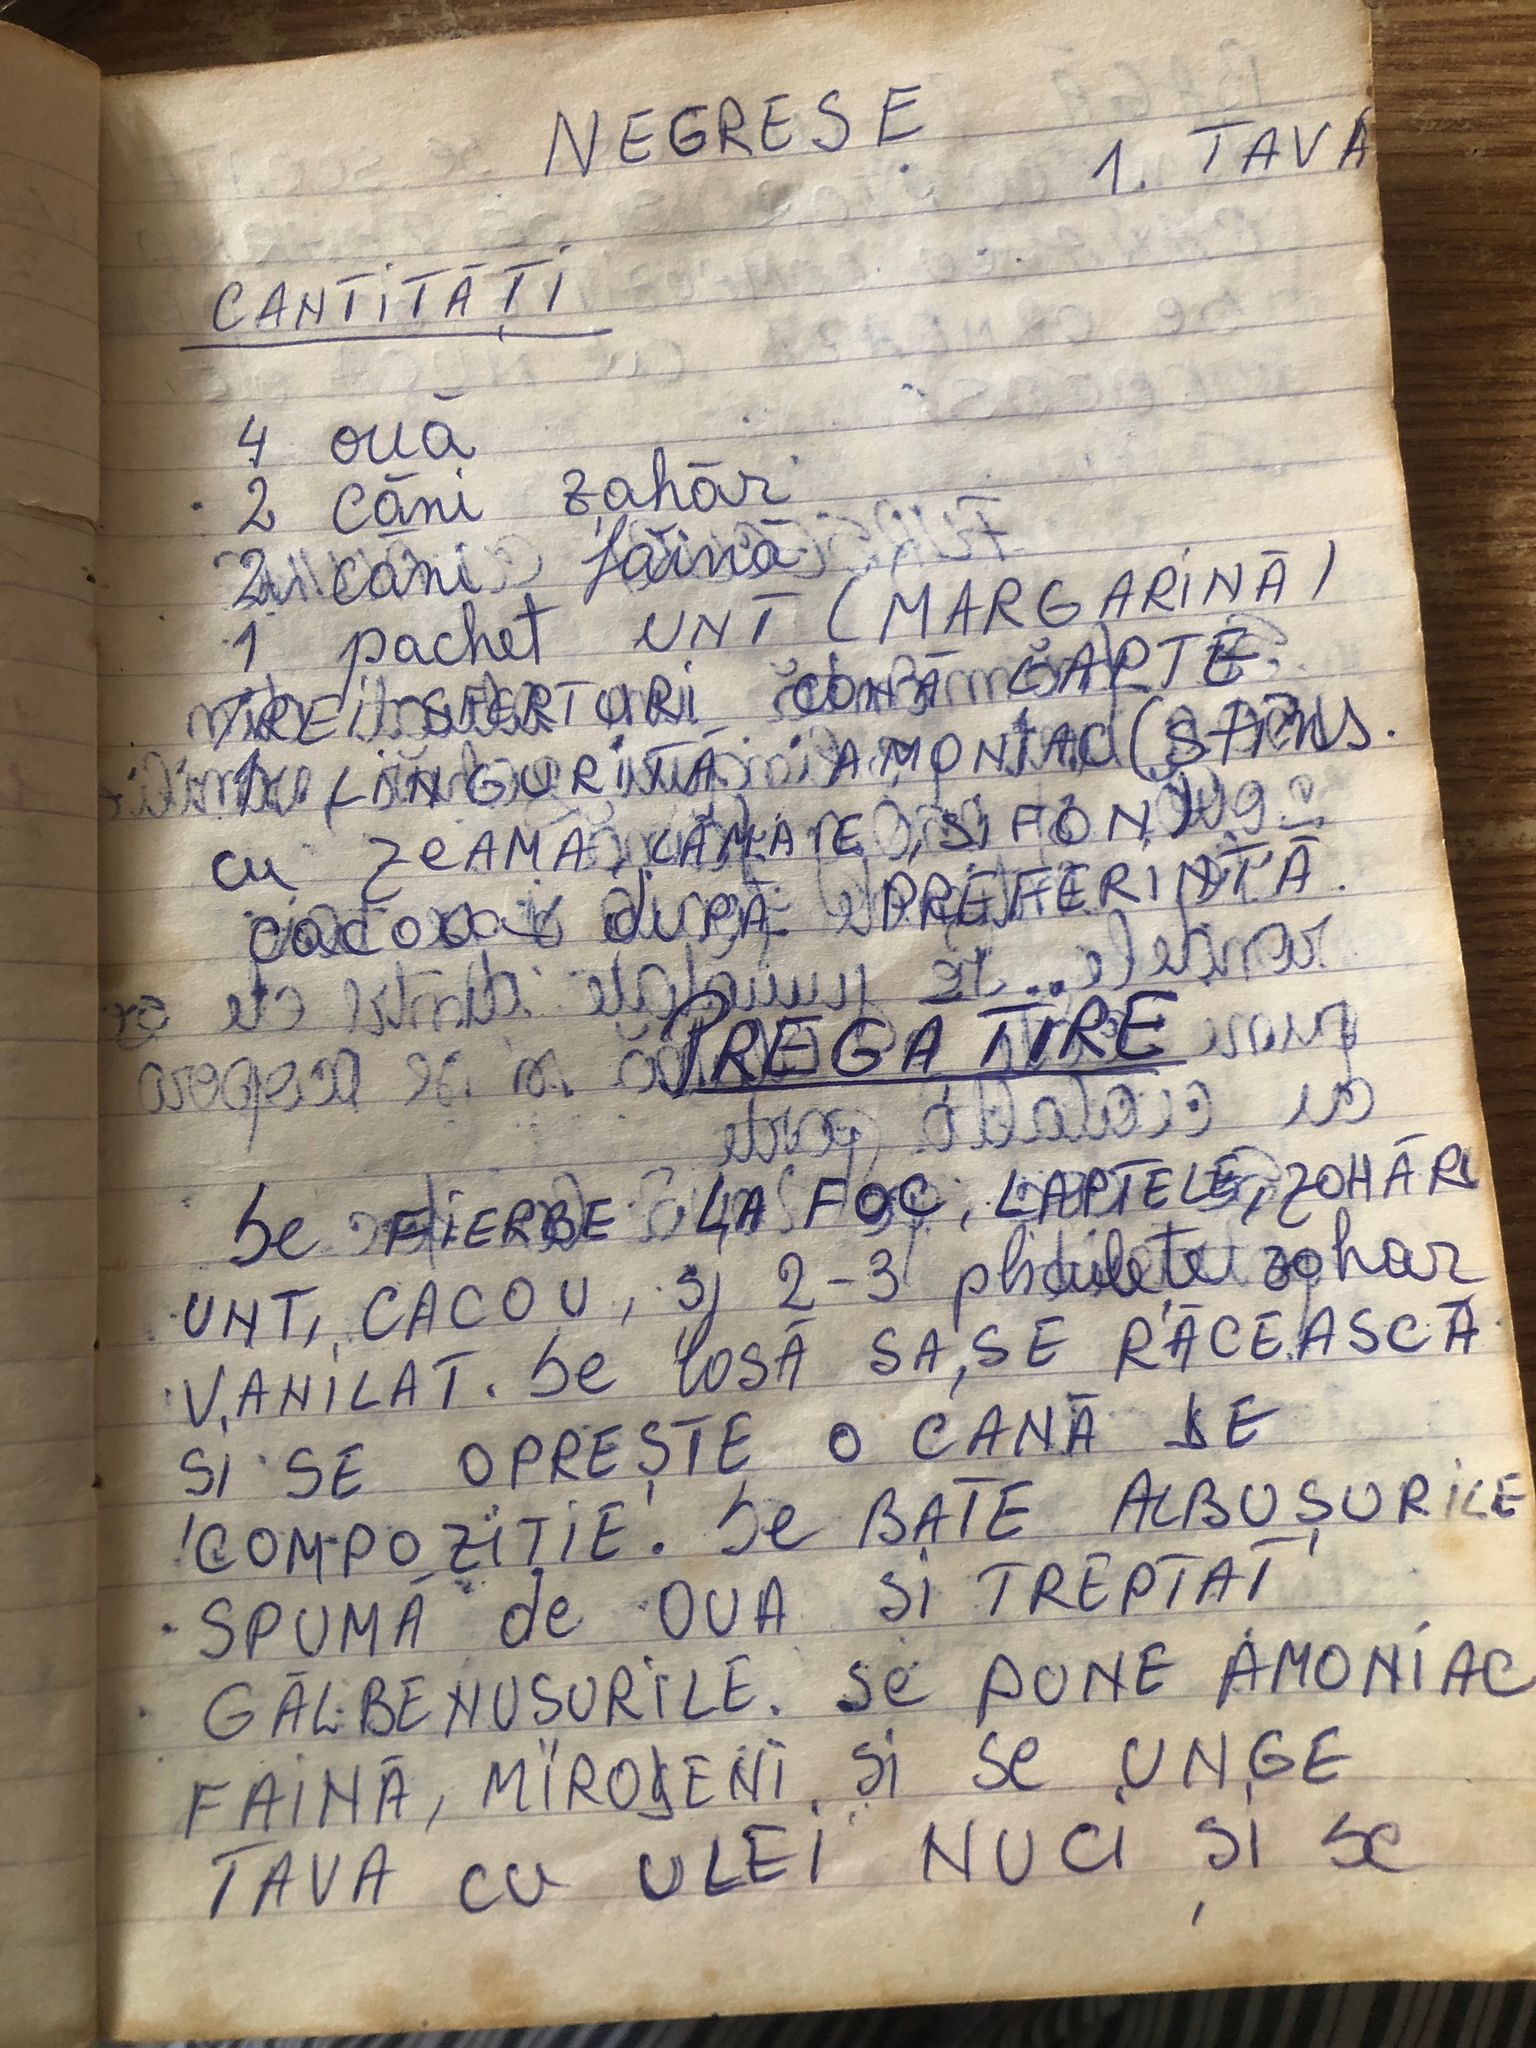 NEGRESE
1. TAVĂ
CANTITĂȚI
4 ouă
2 căni zahăr
2 căni făină
1 pachet UNT (MARGARINĂ)
TREI SFERTURI CONĂ LAPTE
1 LINGURIȚĂ AMONIAC (STINS.
cu ZeAMĂ LĂMÂIE, SIFON)
cacoua dUPĂ PREFERINȚĂ.
PREGATIRE
Se FIERBE LA FOC, LAPTELE, ZOHĂRL
UNT, CACOU, și 2-3 pliculete zohar
VANILAT. Se losă SA, SE RĂCEASCĂ
SI SE OPREȘTE O CANĂ DE
COMPOZIȚIE. Se BATE ALBUȘURILE
SPUMĂ de OUA și TREPTAT
GĂLBENUSURILE. se PUNE AMONIAC
FAINĂ, MIRODENI și se UNGE
TAVA cu ULEI NUCI și se